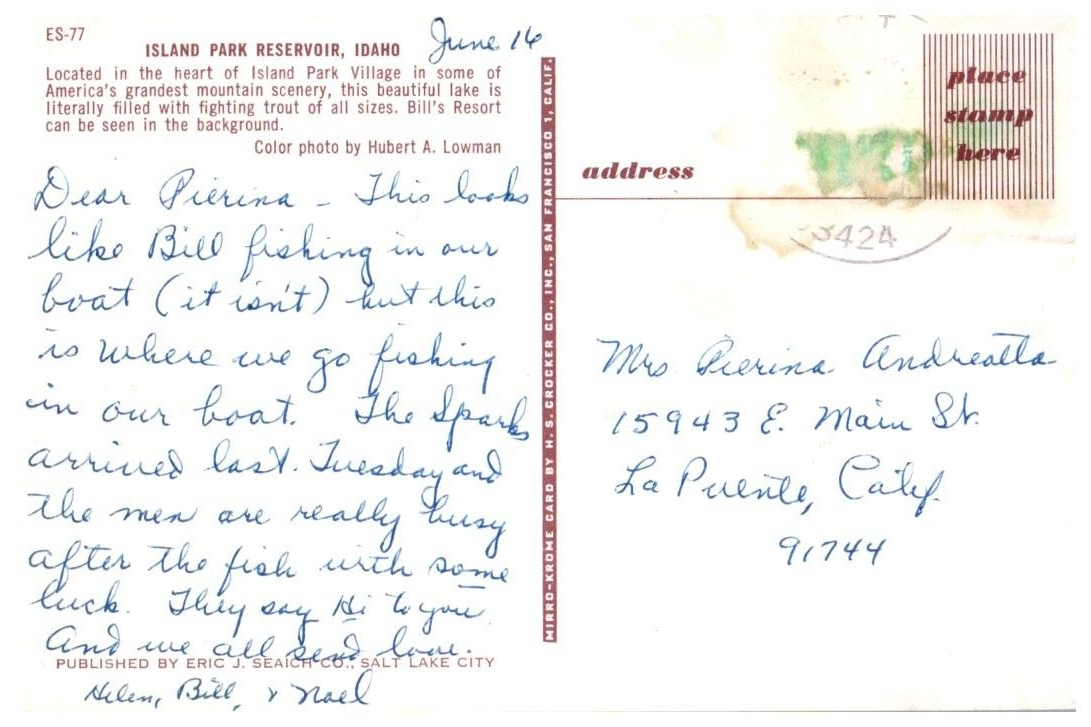 ES-77
June 16
ISLAND PARK RESERVOIR, IDAHO
Located in the heart of Island Park Village in some of
America's grandest mountain scenery, this beautiful lake is
literally filled with fighting trout of all sizes. Bill's Resort
can be seen in the background.
Color photo by Hubert A. Lowman
Dear Pierina - This looks
like Bill fishing in our
boat (it isn't) but this
is where we go fishing
in our boat. The Sparks
arrived last. Tuesday and
the men are really busy
after the fish with some
luck. They say Hi to you
And we all send love.
PUBLISHED BY ERIC J. SEAICH CO., SALT LAKE CITY
Helen, Bill, & Noel
MIRRO-KROME CARD BY H. S. CROCKER CO., INC., SAN FRANCISCO 1, CALIF.
place
stamp
here
address
3424
Mrs Pierina Andreatta
15943 E. Main St.
La Puente, Calif.
91744